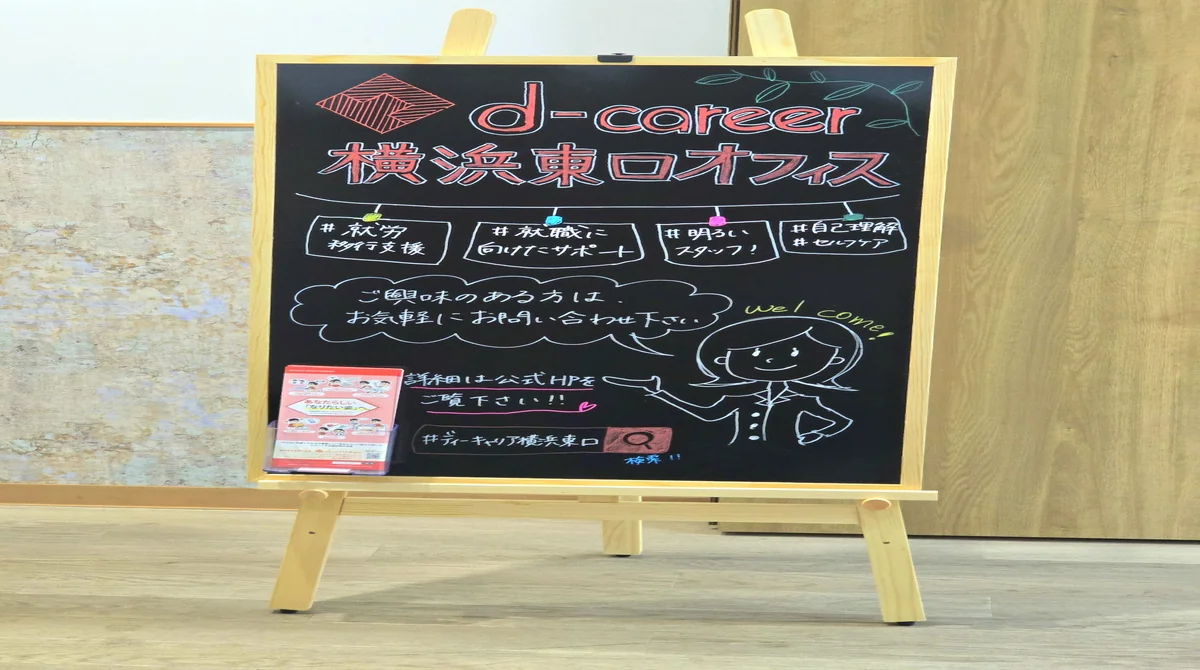 d-career
横浜東口オフィス
#就労
移行支援
#就職に
向けたサポート
#明るい
スタッフ!
#自己理解
#セルフケア
ご興味のある方は、
お気軽にお問い合わせ下さい
welcome!
詳細は公式HPを
ご覧下さい!!
#ディーキャリア横浜東口
検索!!
あなたらしい
「なりたい姿」へ